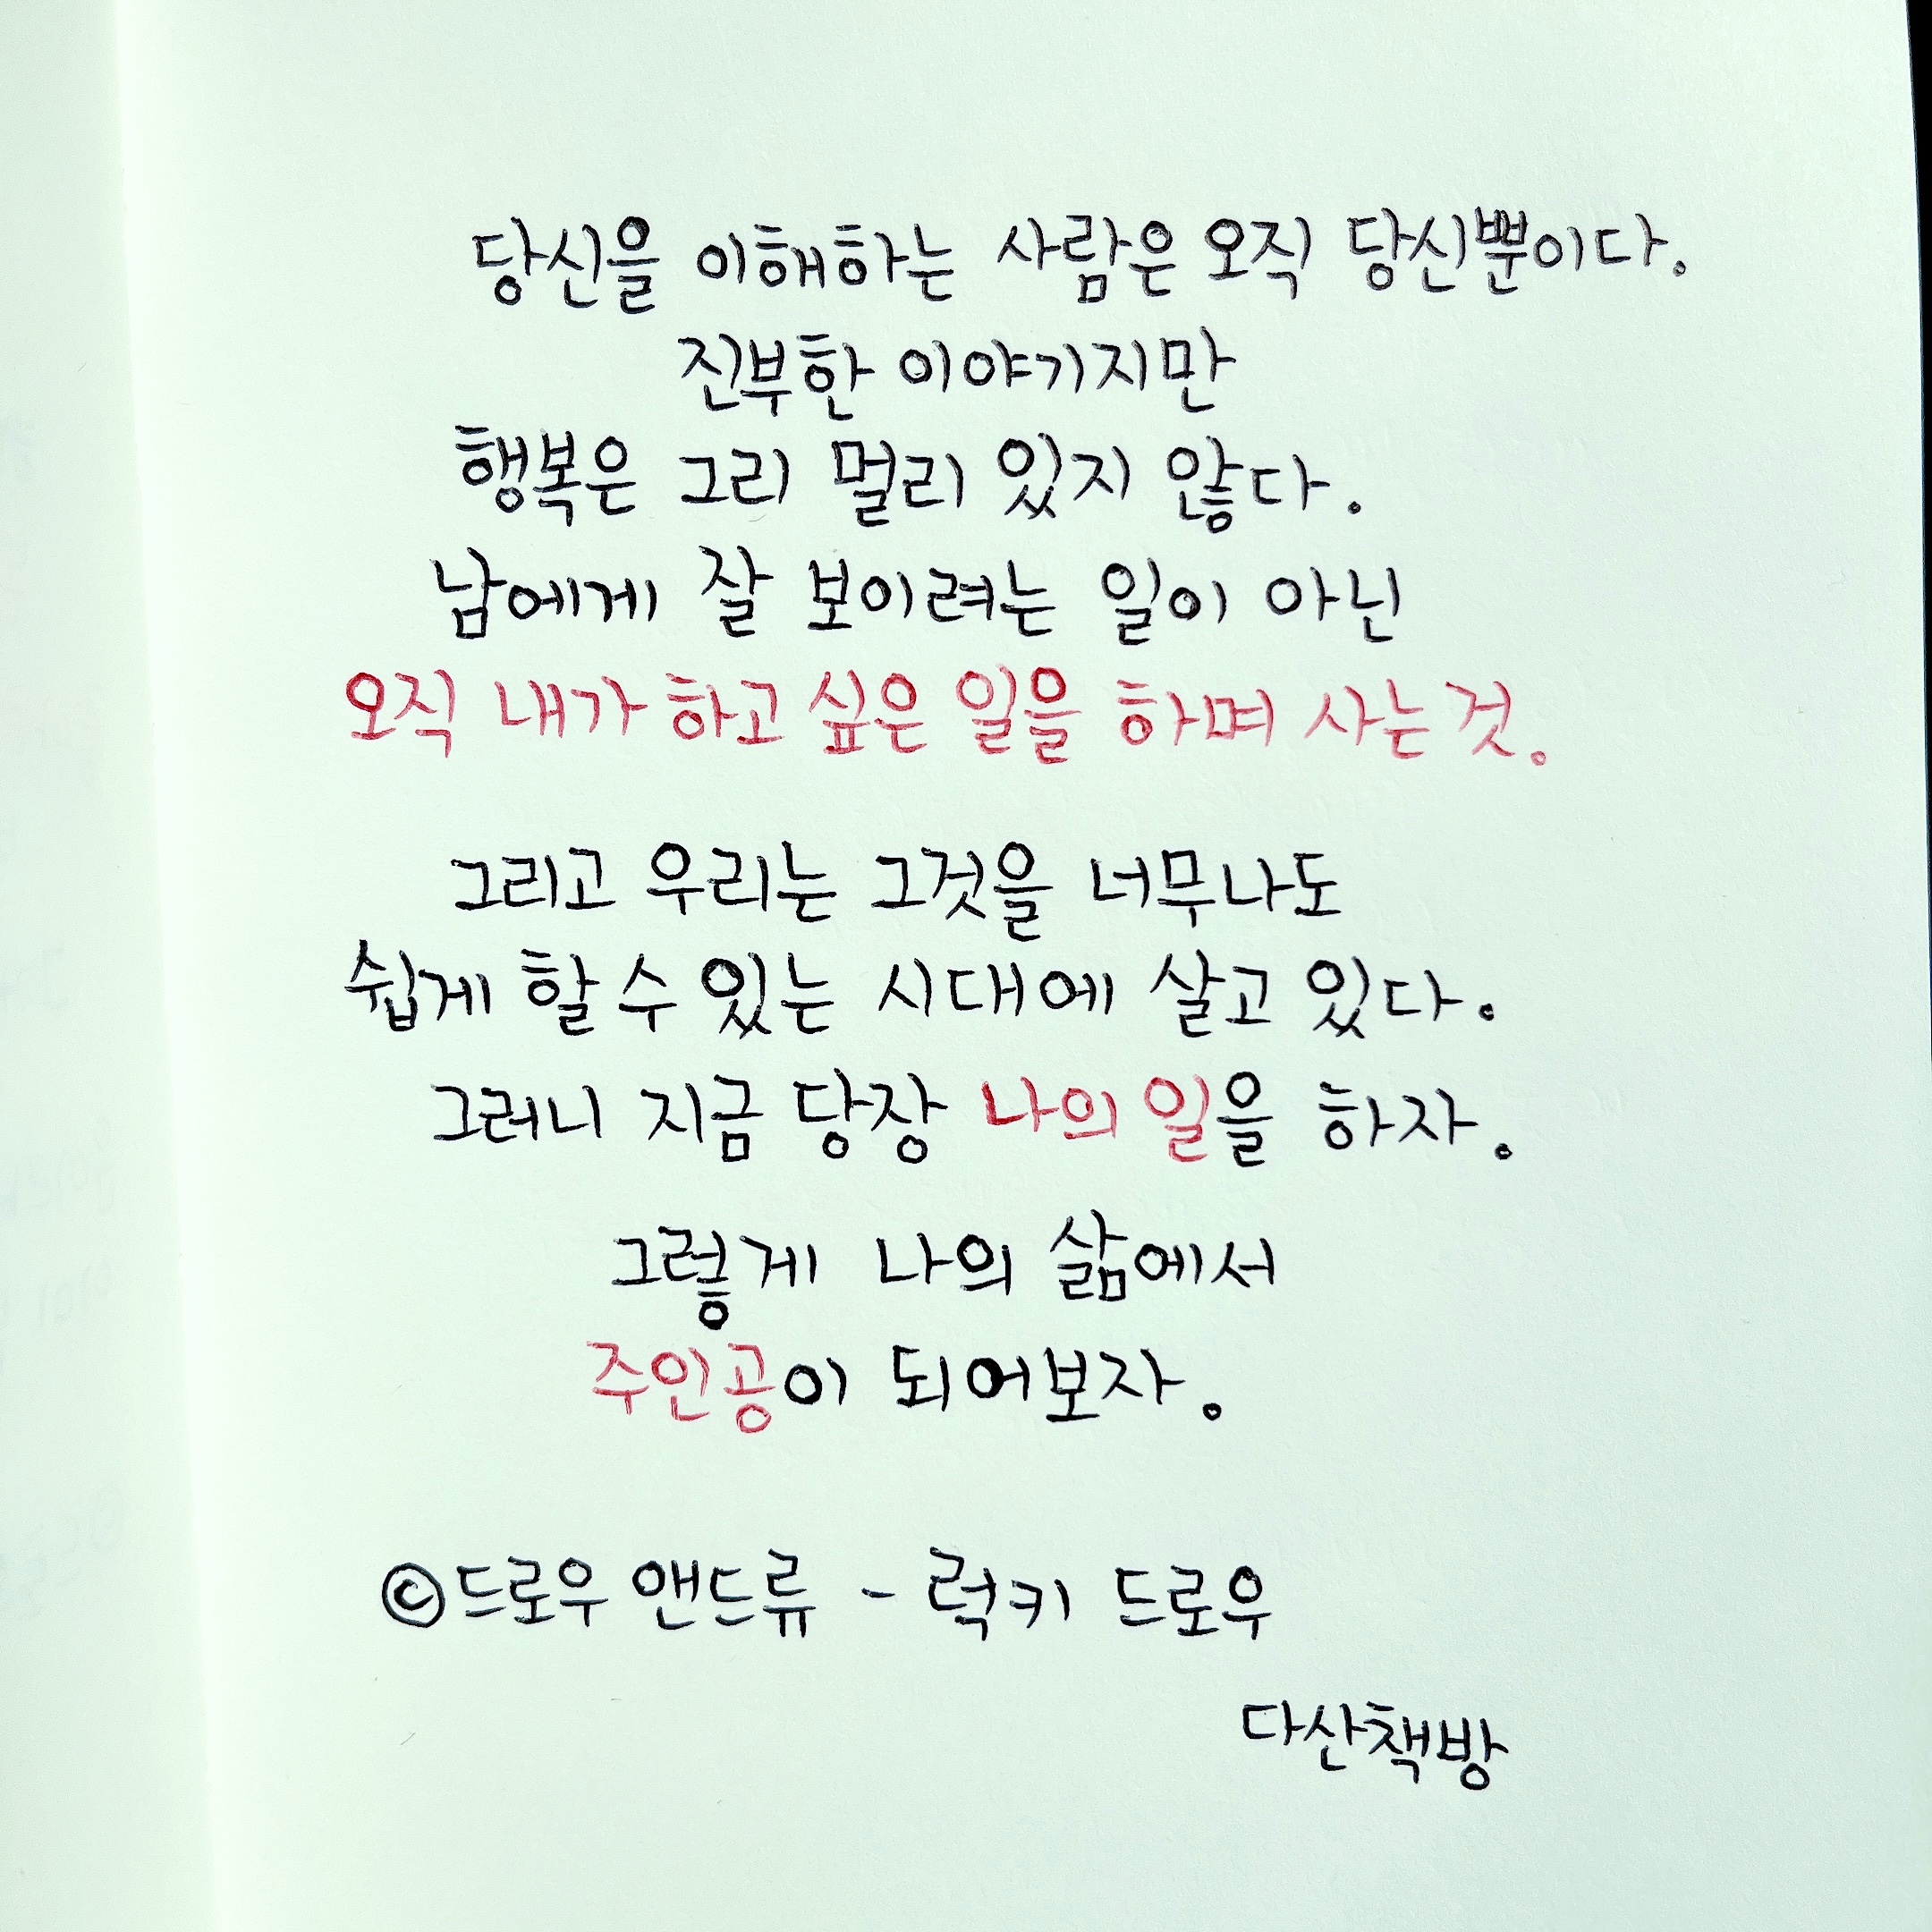 당신을 이해하는 사람은 오직 당신뿐이다.
진부한 이야기지만
행복은 그리 멀리 있지 않다.
남에게 잘 보이려는 일이 아닌
오직 내가 하고 싶은 일을 하며 사는 것.
그리고 우리는 그것을 너무나도
쉽게 할 수 있는 시대에 살고 있다.
그러니 지금 당장 나의 일을 하자.
그렇게 나의 삶에서
주인공이 되어보자.
©드로우 앤드류 - 럭키 드로우
다산책방